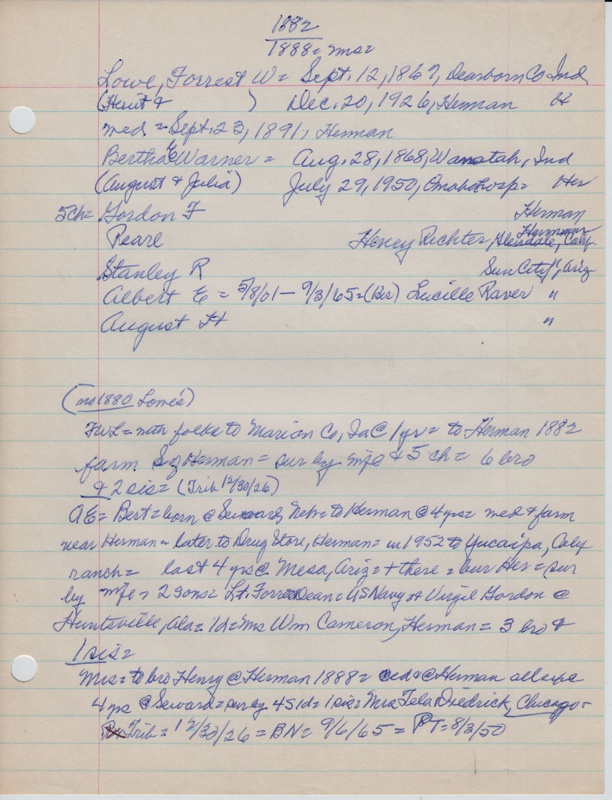 1882
1888 = mrs =
Lowe, Forrest W = Sept. 12, 1867, Dearborn Co Ind
(Hunt & ) Dec. 20, 1926, Herman H
med = Sept. 23, 1891, Herman
Bertha E Warner = Aug. 28, 1868, Wanatah, Ind
(August & Julia) July 29, 1950, Omaha hosp = Her
5 ch = Gordon F Herman
Pearl Henry Richter, Glendale, Calif
Stanley R Sun City, Ariz
Albert E = 5/8/01 - 9/3/65 = (Her) Lucille Raver "
August H "
(no 1880 Lowes)
FWL = with folks to Marion Co, Ia @ 1 yr = to Herman 1882
farm S of Herman = sur by wife & 5 ch = 6 bro
& 2 sis = (Trib 12/30/26)
AE = Bert = born @ Seward, Neb = to Herman @ 4 yrs = med & farm
near Herman = later to Drug Store, Herman = in 1952 to Yucaipa, Calif
ranch = last 4 yrs @ Mesa, Ariz = + there = bur Her = sur
by wife, 2 sons = Lt. Forre Dean = US Navy & Virgil Gordon @
Huntsville, Ala = 1 d = Ms Wm Cameron, Herman = 3 bro &
1 sis =
Mrs = to bro Henry @ Herman 1888 = @ Herman all exc
4 yrs @ Seward = sur by 4 S 1 d = 1 sis = Mrs Tela Diedrick, Chicago -
Trib = 12/30/26 = BN = 9/6/65 = PT = 8/3/50